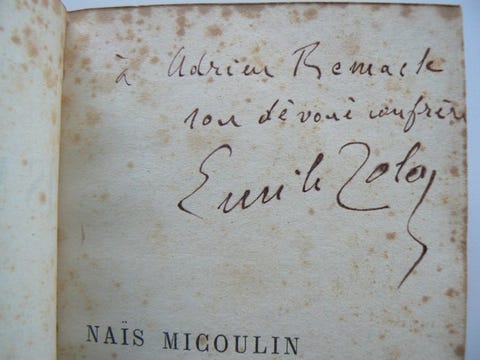 à Adrien Remacle
son dévoué confrère
Emile Zola
NAÏS MICOULIN